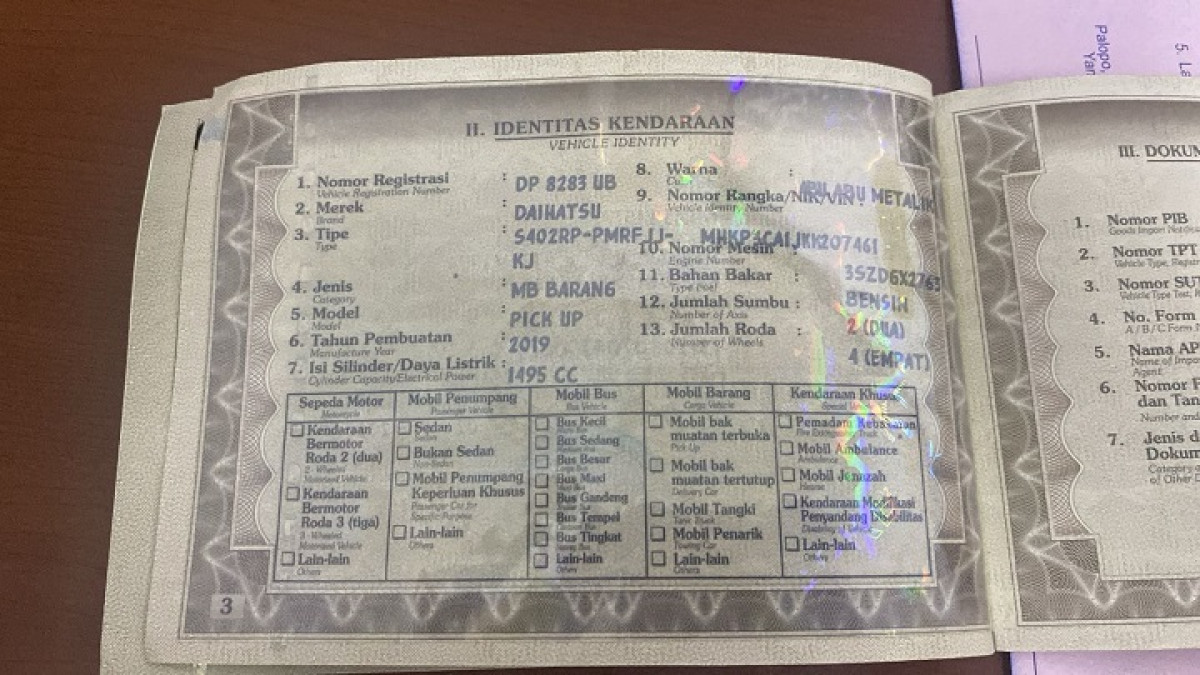 II. IDENTITAS KENDARAAN
VEHICLE IDENTITY
1. Nomor Registrasi : DP 8283 UB
Vehicle Registration Number
2. Merek : DAIHATSU
Brand
3. Tipe : S402RP-PMRFJJ-
Type
KJ
4. Jenis : MB BARANG
Category
5. Model : PICK UP
Model
6. Tahun Pembuatan : 2019
Manufacture Year
7. Isi Silinder/Daya Listrik : 1495 CC
Cylinder Capacity/Electrical Power
8. Warna : ABU ABU METALIK
9. Nomor Rangka/NIK/VIN
Vehicle Identity Number
10. Nomor Mesin
Engine Number
11. Bahan Bakar :
Type Fuel
BENSIN
12. Jumlah Sumbu :
Number of Axis
2 (DUA)
13. Jumlah Roda :
Number of Wheels
4 (EMPAT)
Sepeda Motor
Motorcycle
Kendaraan
Bermotor
Roda 2 (dua)
2 - Wheeled
Motorized Vehicle
Kendaraan
Bermotor
Roda 3 (tiga)
3 - Wheeled
Motorized Vehicle
Lain-lain
Others
Mobil Penumpang
Passenger Vehicle
Sedan
Sedan
Bukan Sedan
Non-Sedan
Mobil Penumpang
Keperluan Khusus
Passenger Car for
Specific Purpose
Lain-lain
Others
Mobil Bus
Bus Vehicle
Bus Kecil
Bus Sedang
Bus Besar
Bus Maxi
Bus Gandeng
Bus Tempel
Bus Tingkat
Lain-lain
Others
Mobil Barang
Cargo Vehicle
Mobil bak
muatan terbuka
Pick Up
Mobil bak
muatan tertutup
Delivery Car
Mobil Tangki
Tank Truck
Mobil Penarik
Towing Car
Lain-lain
Others
Kendaraan Khusus
Pemadam Kebakaran
Mobil Ambulance
Ambulance
Mobil Jenazah
Hearse
Kendaraan Modifikasi
Penyandang Disabilitas
Lain-lain
Others
3
III. DOKUM
1. Nomor PIB
2. Nomor TPT
3. Nomor SU
4. No. Form
A / B / C Form
5. Nama AP
Agent
6. Nomor
dan Tan
Number and
7. Jenis d
Dokum
of Other D
Palopo,
Yan
5. La